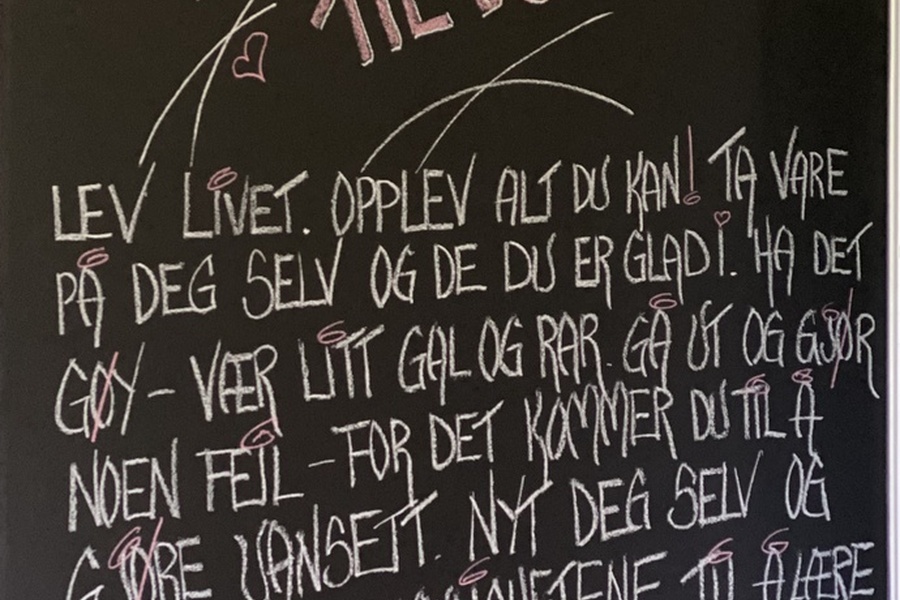 TIL
LEV LIVET. OPPLEV ALT DU KAN! TA VARE
PÅ DEG SELV OG DE DU ER GLAD I. HA DET
GØY - VÆR LITT GAL OG RAR. GÅ UT OG GJØR
NOEN FEIL - FOR DET KOMMER DU TIL Å
GJØRE UANSETT. NYT DEG SELV OG
TIL Å LÆRE